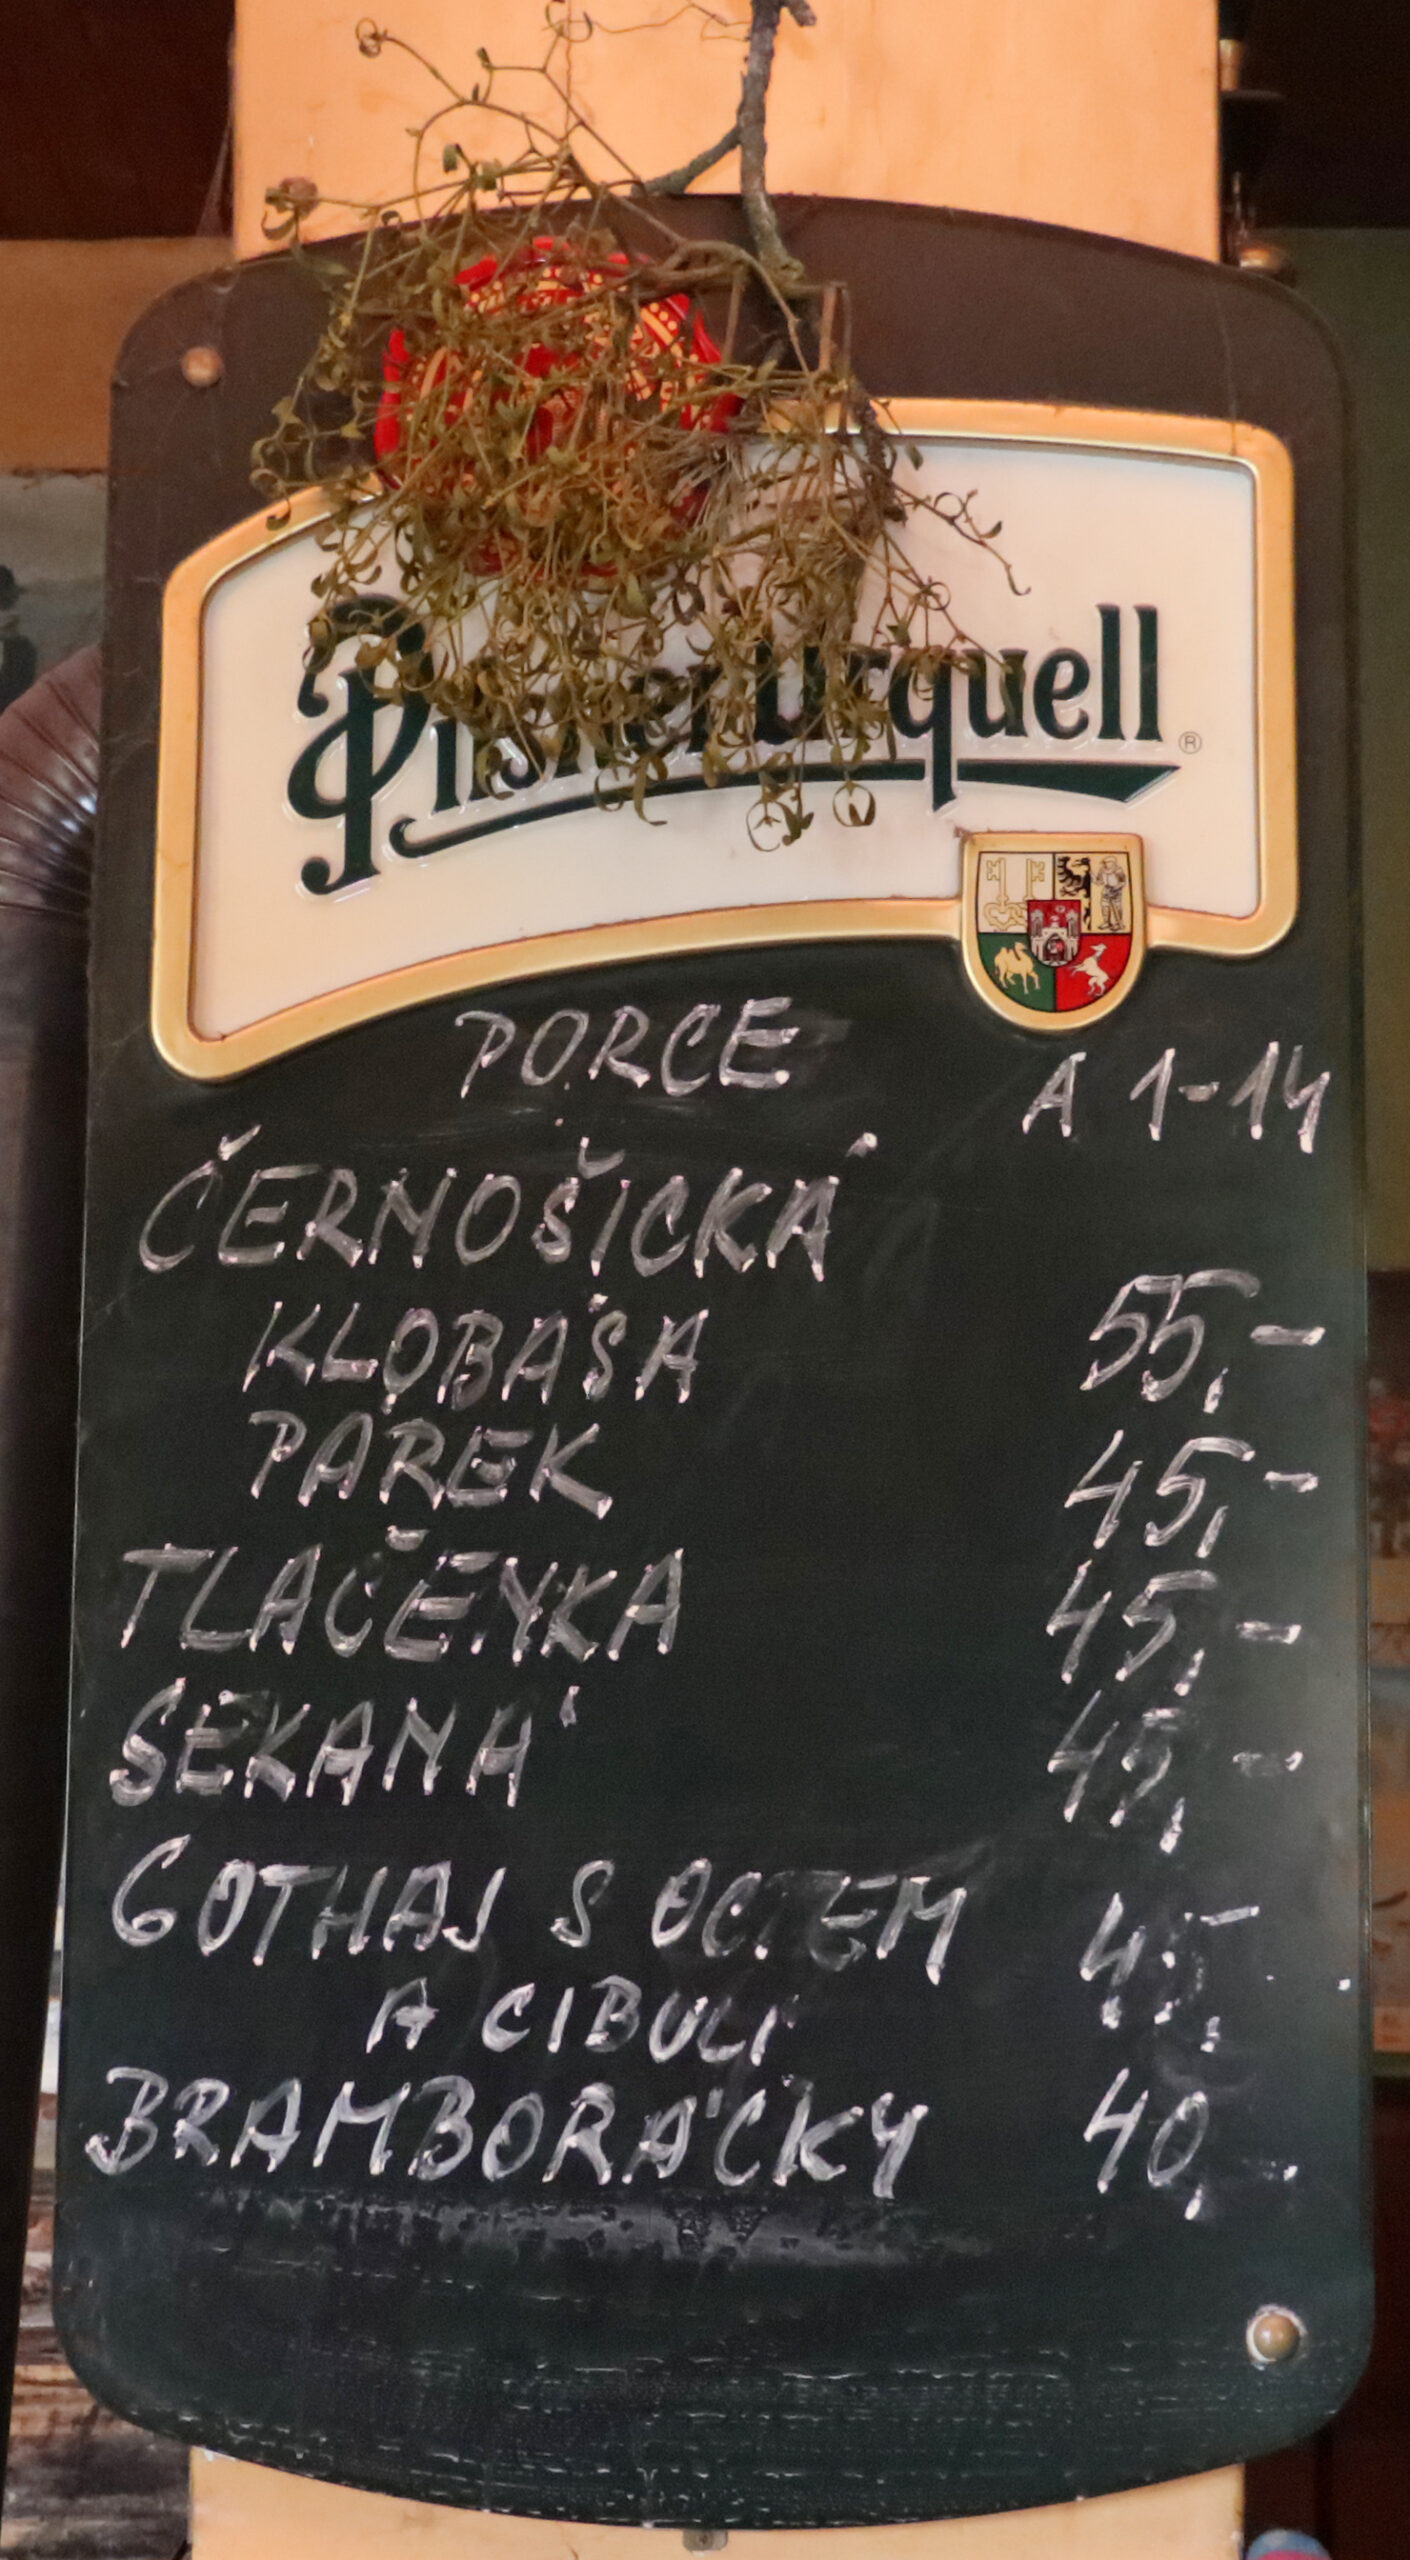 Pilsner Urquell ®
PORCE
A 1-14
ČERNOŠICKÁ
KLOBÁSA 55,-
PÁREK 45,-
TLAČENKA 45,-
SEKANÁ 45,-
GOTHAJ S OCTEM 45,-
A CIBULÍ
BRAMBORÁČKY 40,-